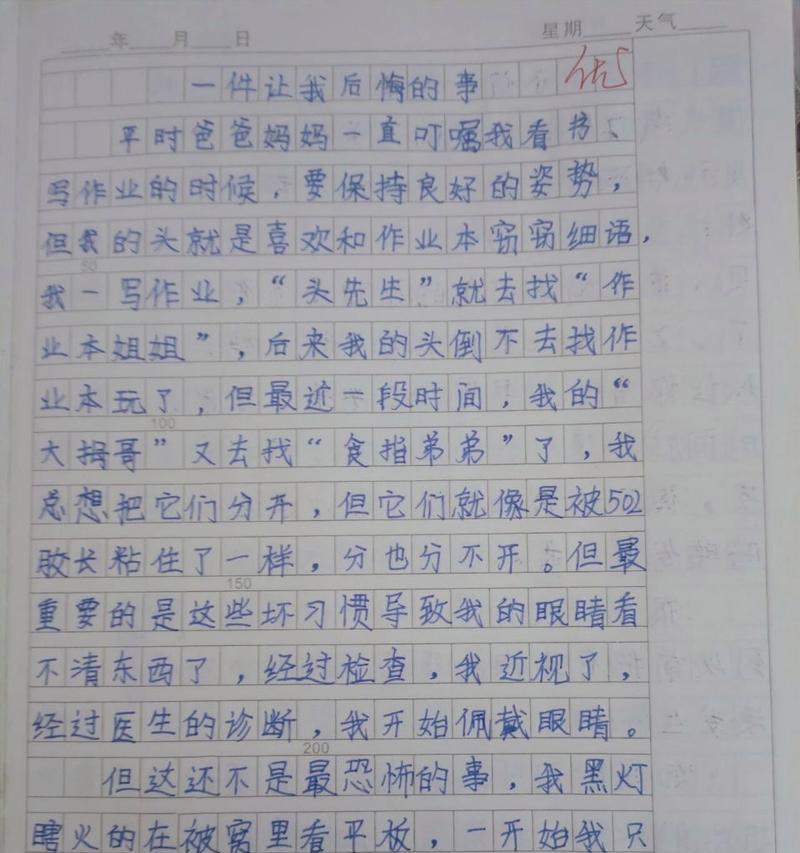 年 月 日 星期 天气
一件让我后悔的事 优
平时爸爸妈妈一直叮嘱我看书、
写作业的时候，要保持良好的姿势，
但我的头就是喜欢和作业本窃窃细语，
50
我一写作业，“头先生”就去找“作
业本姐姐”，后来我的头倒不去找作
业本玩了，但最近一段时间，我的“
100
大拇哥”又去找“食指弟弟”了，我
总想把它们分开，但它们就像是被502
胶长粘住了一样，分也分不开。但最
150
重要的是这些坏习惯导致我的眼睛看
不清东西了，经过检查，我近视了，
经过医生的诊断，我开始佩戴眼睛。
200
但这还不是最恐怖的事，我黑灯
瞎火的在被窝里看平板，一开始我只